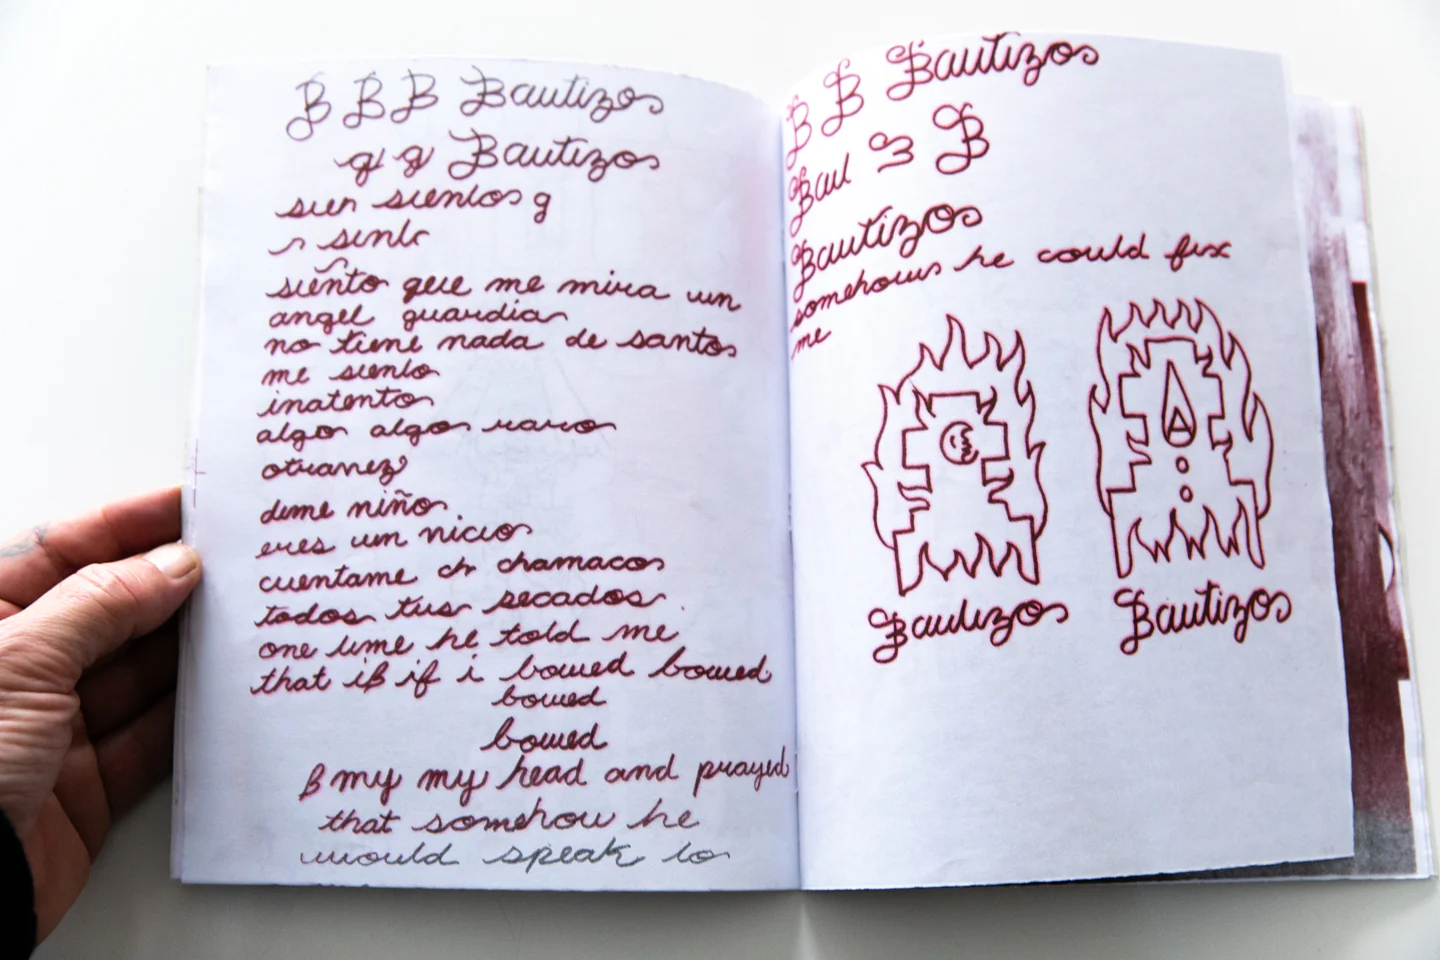 B B B Bautizos
g g Bautizos
sien sientos g
n sinto
siento que me mira un
angel guardia
no tiene nada de santos
me siento
inatento
algo algo raro
otravez
dime niño.
eres un nicio
cuentame ch chamacos
todos tus pecados.
one time he told me
that iB if i bowed bowed
bowed
bowed
B my my head and prayed
that somehow he
would speak to
B B Bautizos
Baut B
Bautizos
somehows he could fix
me
Bautizos
Bautizos